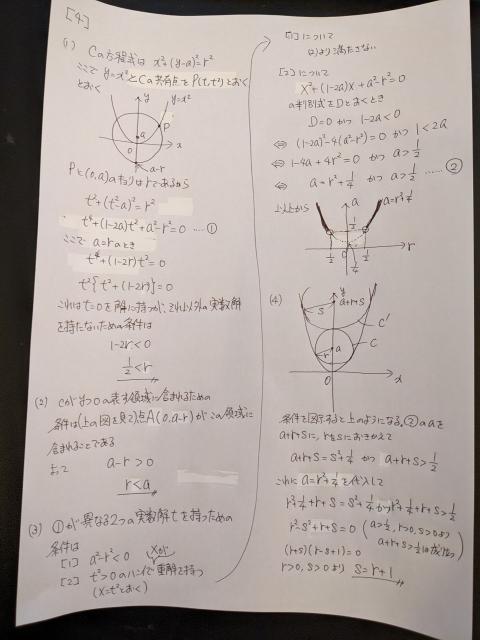 [4]
(1) Cの方程式は x²+(y-a)²=r²
ここで y=x²とCの共有点をP(t,t²)とおく
とおく
y
y=x²
P
a
x
0
a-r
Pと(0,a)のキョリはrであるから
t²+(t²-a)²=r²
t⁴+(1-2a)t²+a²-r²=0 ……①
ここで a=rのとき
t⁴+(1-2r)t²=0
t²{t²+(1-2r)}=0
これはt=0を解に持つが、それ以外の実数解
を持たないための条件は
1-2r<0
1/2<r
(2) Cがy>0の表す領域に含まれるための
条件は(上の図を見て)点A(0,a-r)がこの領域に
含まれることである
よって a-r>0
r<a
(3) ①が異なる2つの実数解tを持つための
条件は
[1] a²-r²<0
[2] t²>0のハンイで重解を持つ
Xが
(X=t²とおく)
[1]について
(2)より満たさない
[2]について
X²+(1-2a)X+a²-r²=0
の判別式をDとおくとき
D=0 かつ 1-2a<0
⇔ (1-2a)²-4(a²-r²)=0 かつ 1<2a
⇔ 1-4a+4r²=0 かつ a>1/2
⇔ a=r²+1/4 かつ a>1/2 ……②
以上から
a
a=r²+1/4
1/2
r
-1/2
0
1/4
1/2
(4)
y
a+r+S
S
C'
a
C
r
0
x
条件を図示すると上のようになる。②のaを
a+r+Sに、rをSにおきかえて
a+r+S=S²+1/4 かつ a+r+S>1/2
これに a=r²+1/4を代入して
r²+1/4+r+S=S²+1/4かつr²+1/4+r+S>1/2
r²-S²+r+S=0 (a>1/2, r>0, S>0より
a+r+S>1/2は成り立つ)
(r+S)(r-S+1)=0
r>0, S>0より S=r+1